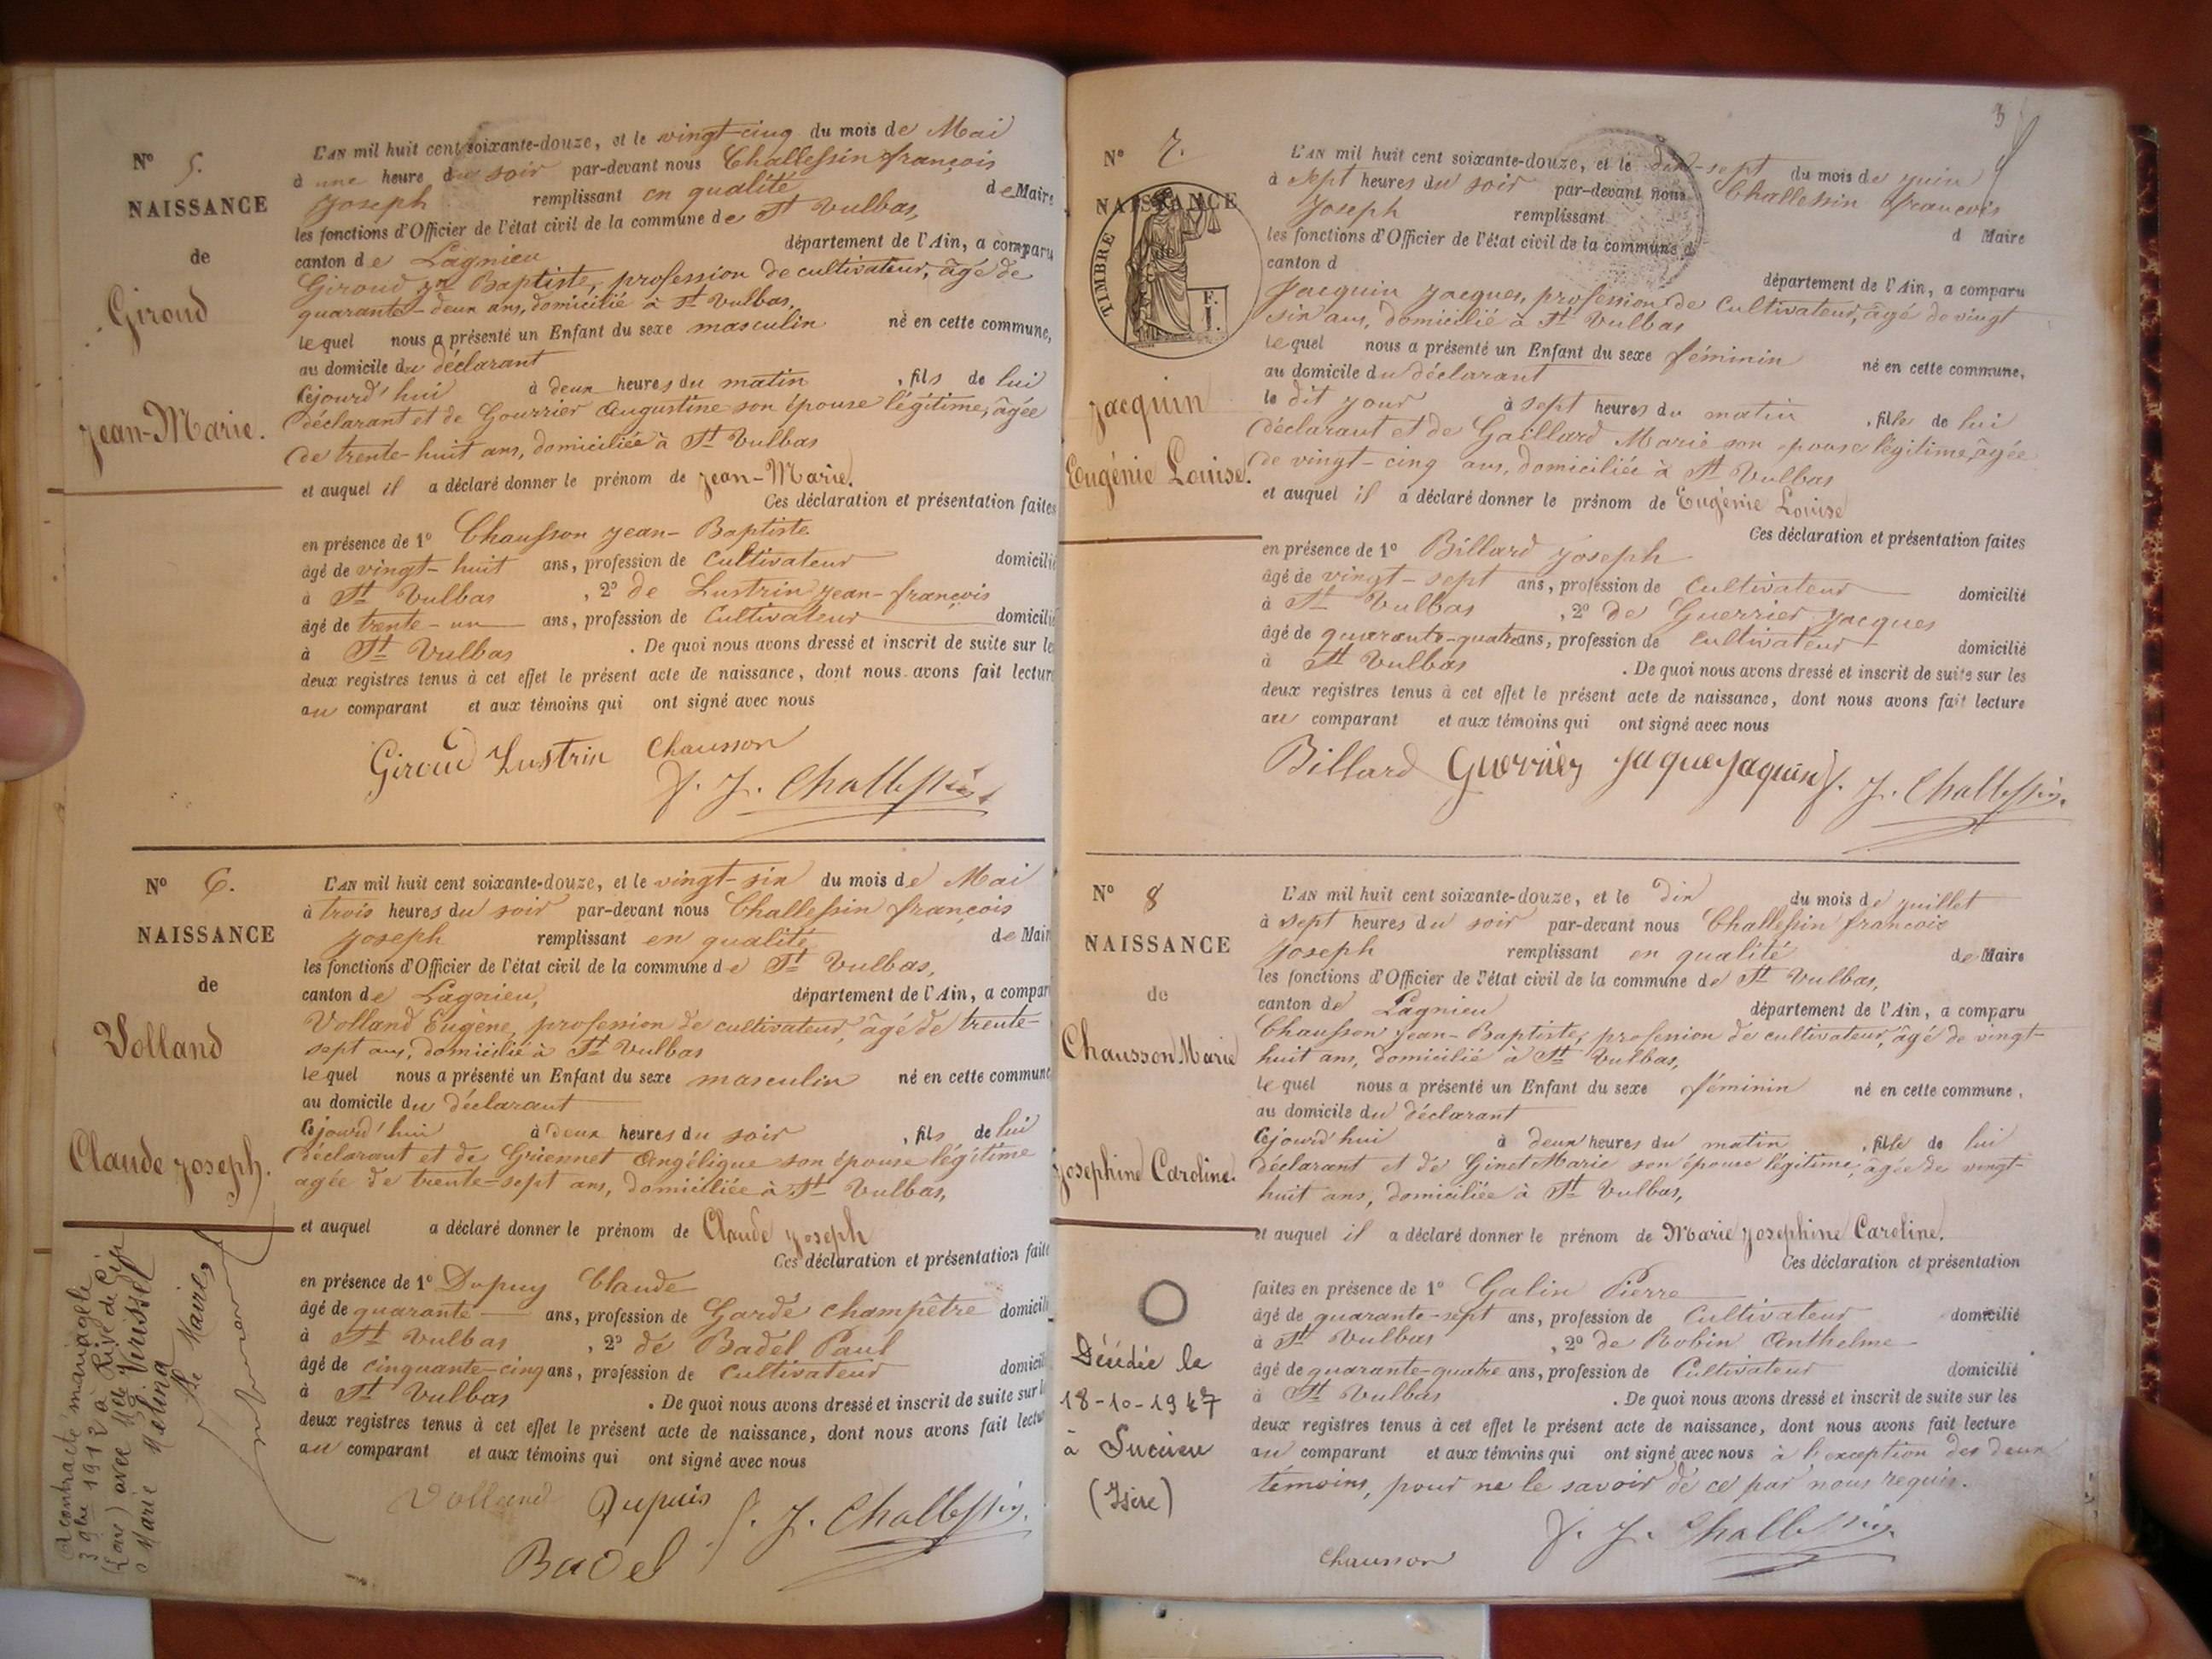 N° 5.
NAISSANCE
de
Giroud
Jean-Marie.
L'AN mil huit cent soixante-douze, et le vingt-cinq du mois de Mai
à une heure du soir par-devant nous Challessin françois
Joseph remplissant en qualité de Maire
les fonctions d'Officier de l'état civil de la commune de St Vulbas,
canton de Lagnieu département de l'Ain, a comparu
Giroud Jn Baptiste, profession de cultivateur, âgé de
quarante-deux ans, domicilié à St Vulbas.
lequel nous a présenté un Enfant du sexe masculin né en cette commune,
au domicile du déclarant
Cejourd'hui à deux heures du matin, fils de lui
déclarant et de Gourrier Augustine son épouse légitime, âgée
de trente-huit ans, domiciliée à St Vulbas
et auquel il a déclaré donner le prénom de Jean-Marie.
Ces déclaration et présentation faites
en présence de 1° Chausson Jean-Baptiste
âgé de vingt-huit ans, profession de Cultivateur domicilié
à St Vulbas, 2° de Lustrin Jean-françois
âgé de trente-un ans, profession de Cultivateur domicilié
à St Vulbas. De quoi nous avons dressé et inscrit de suite sur le
deux registres tenus à cet effet le présent acte de naissance, dont nous avons fait lectur
au comparant et aux témoins qui ont signé avec nous
Giroud Lustrin Chausson
f. J. Challessin
N° 6.
NAISSANCE
de
Volland
Claude Joseph.
L'AN mil huit cent soixante-douze, et le vingt-six du mois de Mai
à trois heures du soir par-devant nous Challessin françois
Joseph remplissant en qualité de Mair
les fonctions d'Officier de l'état civil de la commune de St Vulbas,
canton de Lagnieu, département de l'Ain, a compar
Volland Eugène, profession de cultivateur, âgé de trente-
sept ans, domicilié à St Vulbas
lequel nous a présenté un Enfant du sexe masculin né en cette commune
au domicile du déclarant
Cejourd'hui à deux heures du soir, fils de lui
déclarant et de Guiennet Angélique son épouse légitime
agée de trente-sept ans, domiciliée à St Vulbas,
et auquel a déclaré donner le prénom de Claude Joseph
Ces déclaration et présentation faite
en présence de 1° Dupuy Claude
âgé de quarante ans, profession de Garde champêtre domicili
à St Vulbas, 2° de Badel Paul
âgé de cinquante-cinq ans, profession de Cultivateur domicil
à St Vulbas. De quoi nous avons dressé et inscrit de suite sur l
deux registres tenus à cet effet le présent acte de naissance, dont nous avons fait lectu
au comparant et aux témoins qui ont signé avec nous
Volland Dupuis f. J. Challessin
Badel
A contracté mariage le
3 9bre 1912 à Rive de Gier
(Loire) avec Melle Verissel
Marie Melina
Le Maire,
3
N° 7.
NAISSANCE
TIMBRE
F.
I.
Jacquin
Eugénie Louise.
L'AN mil huit cent soixante-douze, et le dix-sept du mois de juin
à sept heures du soir par-devant nous Challessin francois
Joseph remplissant d Maire
les fonctions d'Officier de l'état civil de la commune d
canton d département de l'Ain, a comparu
Jacquin Jacques, profession de Cultivateur, âgé de vingt
six ans, domicilié à St Vulbas
lequel nous a présenté un Enfant du sexe féminin né en cette commune,
au domicile du déclarant
le dit jour à sept heures du matin, fille de lui
déclarant et de Gaillard Marie son épouse légitime, âgée
de vingt-cinq ans, domiciliée à St Vulbas
et auquel il a déclaré donner le prénom de Eugénie Louise
Ces déclaration et présentation faites
en présence de 1° Billard Joseph
âgé de vingt-sept ans, profession de Cultivateur domicilié
à St Vulbas, 2° de Guerrier Jacques
âgé de quarante-quatre ans, profession de Cultivateur domicilié
à St Vulbas. De quoi nous avons dressé et inscrit de suite sur les
deux registres tenus à cet effet le présent acte de naissance, dont nous avons fait lecture
au comparant et aux témoins qui ont signé avec nous
Billard Guerrier Jaque Jaquin f. J. Challessin
N° 8
NAISSANCE
de
Chausson Marie
Josephine Caroline.
L'AN mil huit cent soixante-douze, et le dix du mois de juillet
à sept heures du soir par-devant nous Challessin francois
Joseph remplissant en qualité de Maire
les fonctions d'Officier de l'état civil de la commune de St Vulbas,
canton de Lagnieu département de l'Ain, a comparu
Chausson Jean-Baptiste, profession de cultivateur, âgé de vingt-
huit ans, domicilié à St Vulbas,
lequel nous a présenté un Enfant du sexe féminin né en cette commune,
au domicile du déclarant
Cejourd'hui à deux heures du matin, fille de lui
déclarant et de Ginet Marie son épouse légitime, âgée de vingt-
huit ans, domiciliée à St Vulbas,
et auquel il a déclaré donner le prénom de Marie Josephine Caroline.
Ces déclaration et présentation
faites en présence de 1° Galin Pierre
âgé de quarante-sept ans, profession de Cultivateur domicilié
à St Vulbas, 2° de Robin Anthelme
âgé de quarante-quatre ans, profession de Cultivateur domicilié
à St Vulbas. De quoi nous avons dressé et inscrit de suite sur les
deux registres tenus à cet effet le présent acte de naissance, dont nous avons fait lecture
au comparant et aux témoins qui ont signé avec nous à l'exception des deux
témoins, pour ne le savoir de ce par nous requis.
Chausson f. J. Challessin
Décédée le
18-10-1947
à Succieu
(Isère)